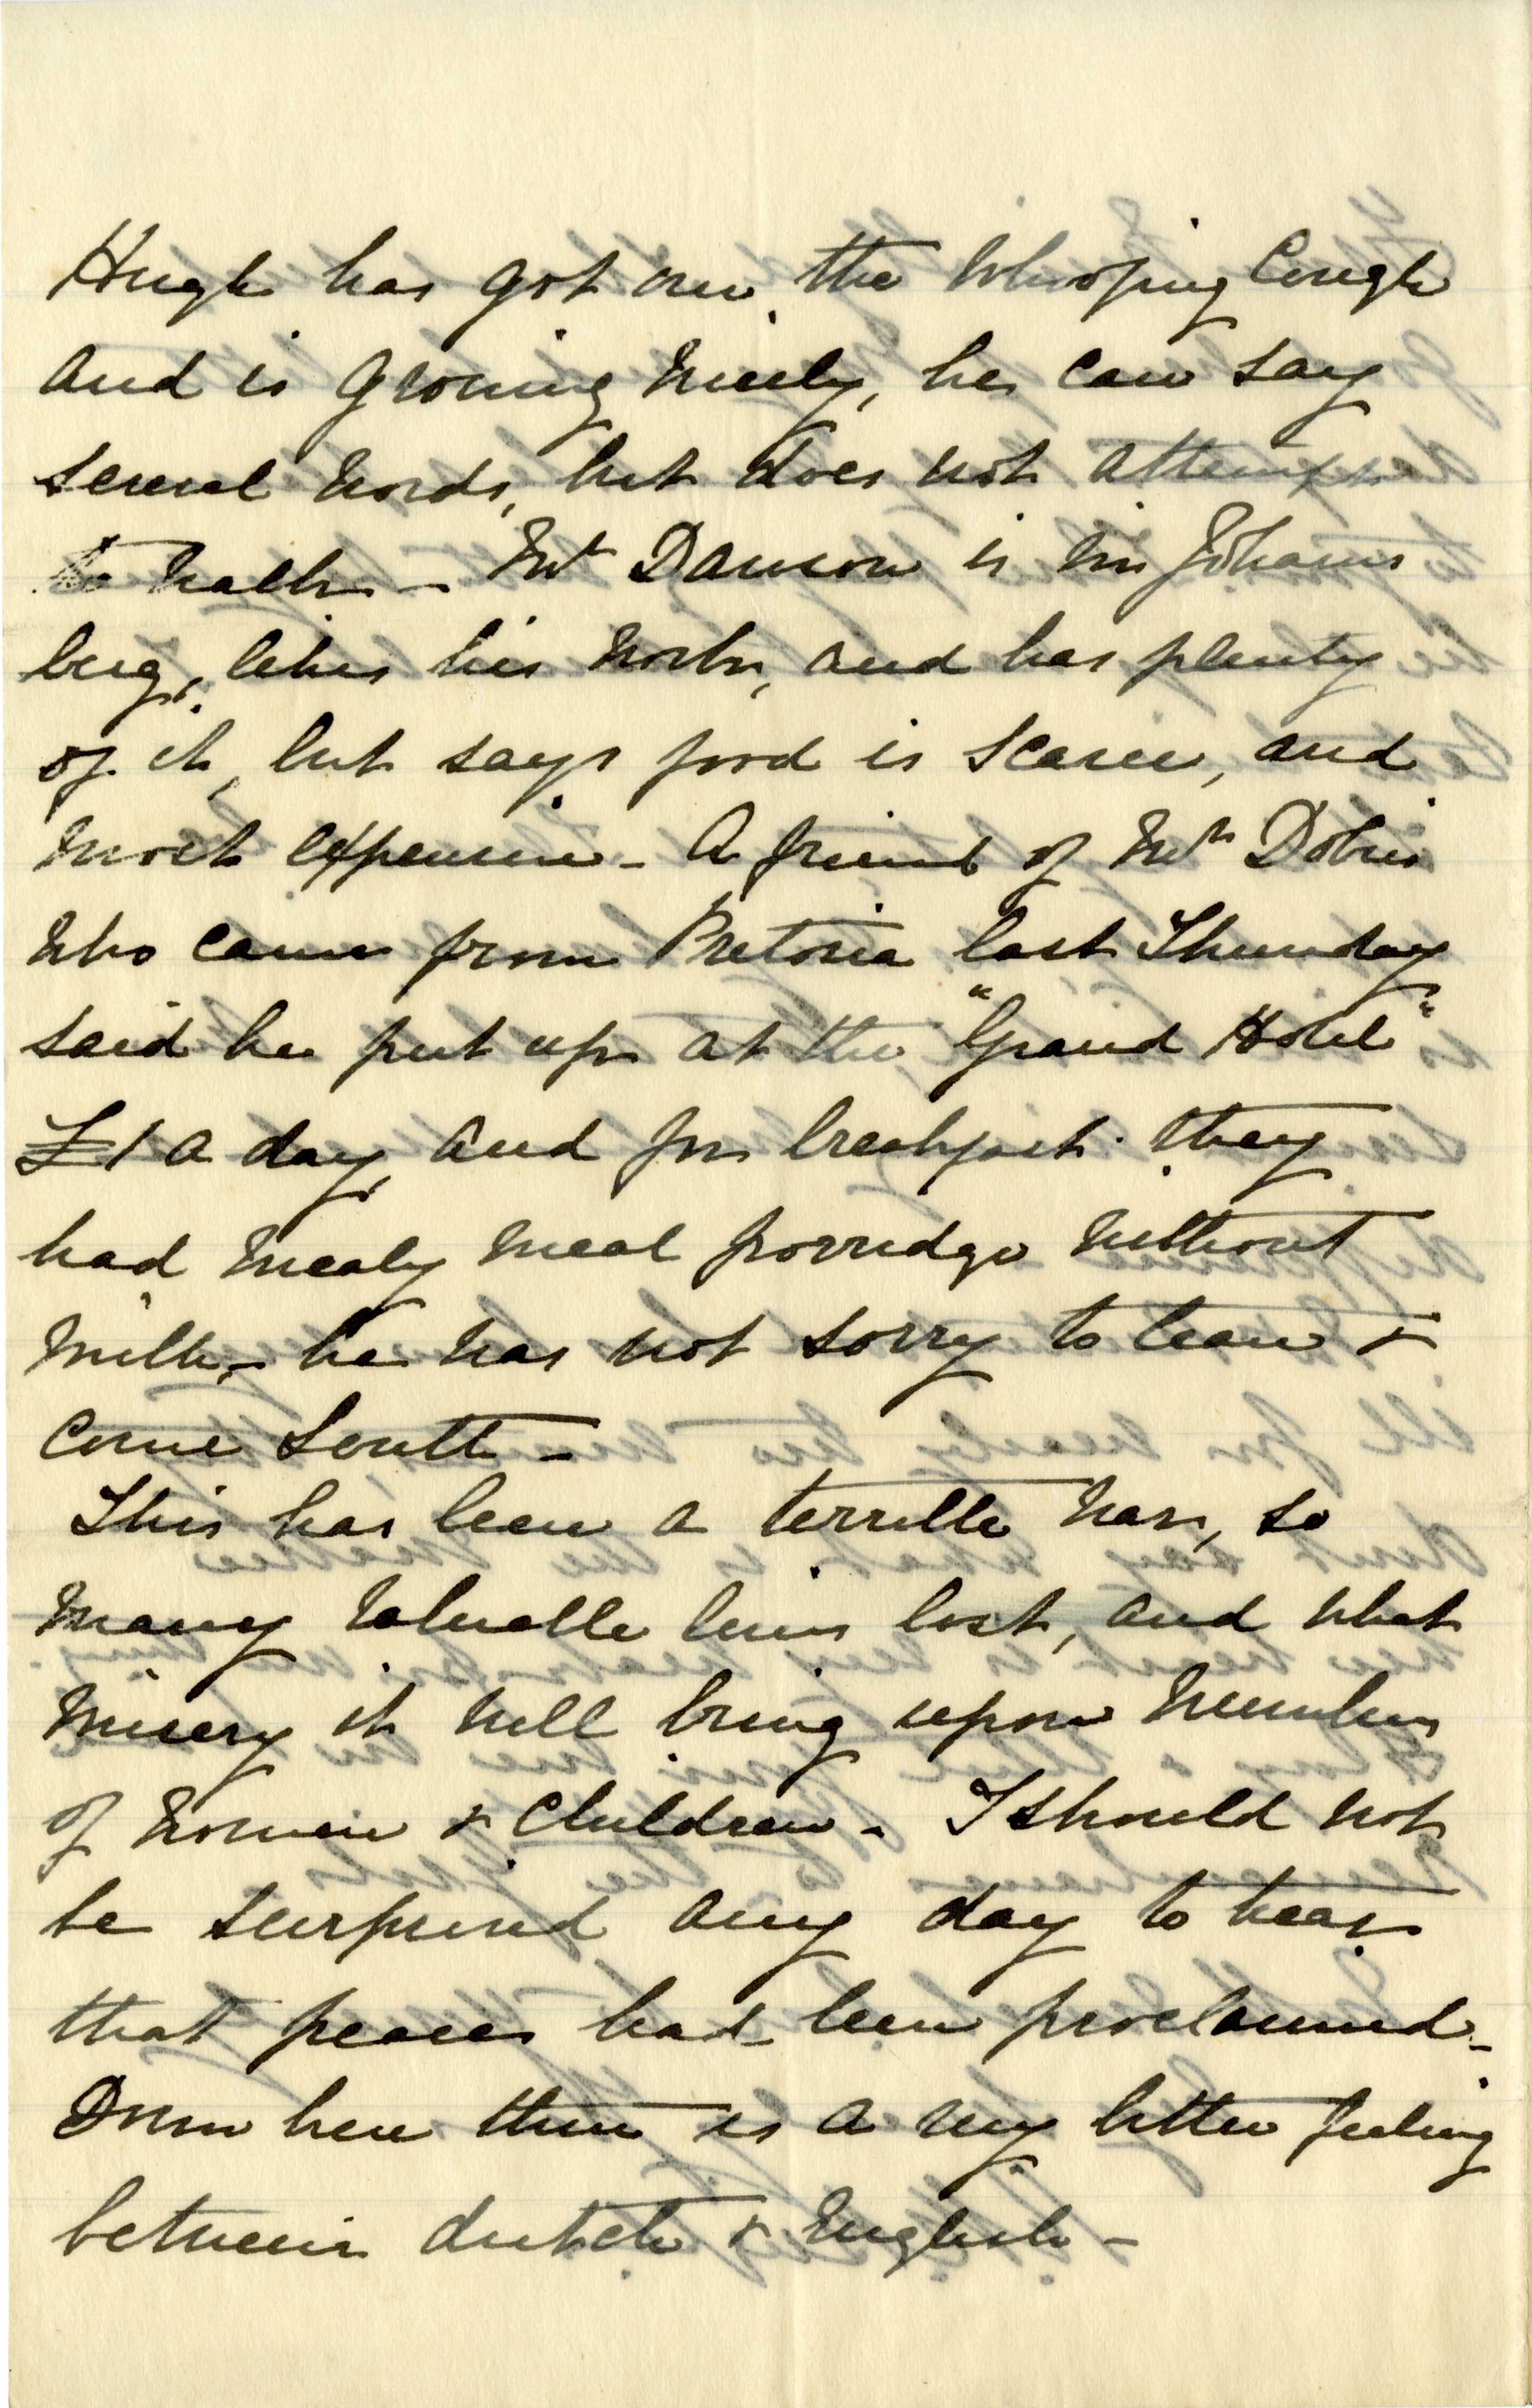 Hugh has got over the Whooping Cough
and is growing nicely, he can say
several words, but does not attempt
to walk - Mr Dawson is in Johannes
burg, likes his work, and has plenty
of it, but says food is scarce, and
most expensive - A friend of Mrs Dobie
who came from Pretoria last Thursday
said he put up at the "Grand Hotel"
£1 a day, and for breakfast they
had mealy meal porridge without
milk, - he was not sorry to leave &
come South -
This has been a terrible war, so
many valuable lives lost, and what
misery it will bring upon numbers
of women & children - I should not
be surprised any day to hear
that peace had been proclaimed -
Down here there is a very bitter feeling
between dutch & English -